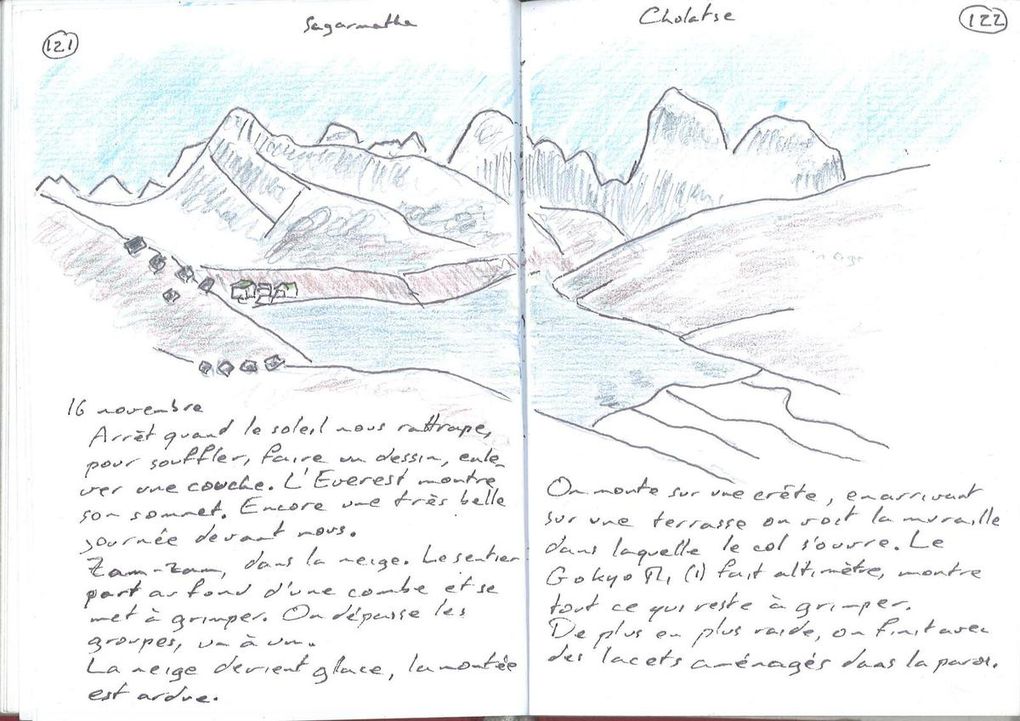 121
Sagarmatha
16 novembre
Arrêt quand le soleil nous rattrape,
pour souffler, faire un dessin, enle_
ver une couche. L'Everest montre
son sommet. Encore une très belle
journée devant nous.
Zam-zam, dans la neige. Le sentier
part au fond d'une combe et se
met à grimper. On dépasse les
groupes, un à un.
La neige devient glace, la montée
est ardue.
122
Cholatse
On monte sur une crête, en arrivant
sur une terrasse on voit la muraille
dans laquelle le col s'ouvre. Le
Gokyo (1) fait altimètre, montre
tout ce qui reste à grimper.
De plus en plus raide, on finit avec
des lacets aménagés dans la paroi.